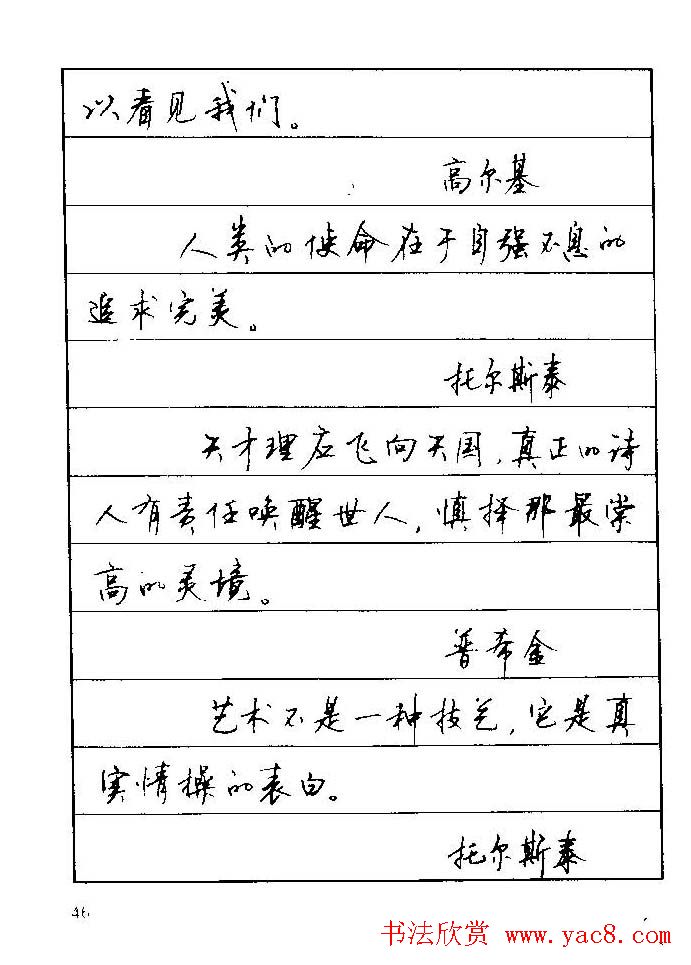 以看见我们。
高尔基
人类的使命在于自强不息的
追求完美。
托尔斯泰
天才理应飞向天国，真正的诗
人有责任唤醒世人，慎择那最崇
高的灵境。
普希金
艺术不是一种技艺，它是真
实情操的表白。
托尔斯泰
46
书法欣赏 www.yac8.com